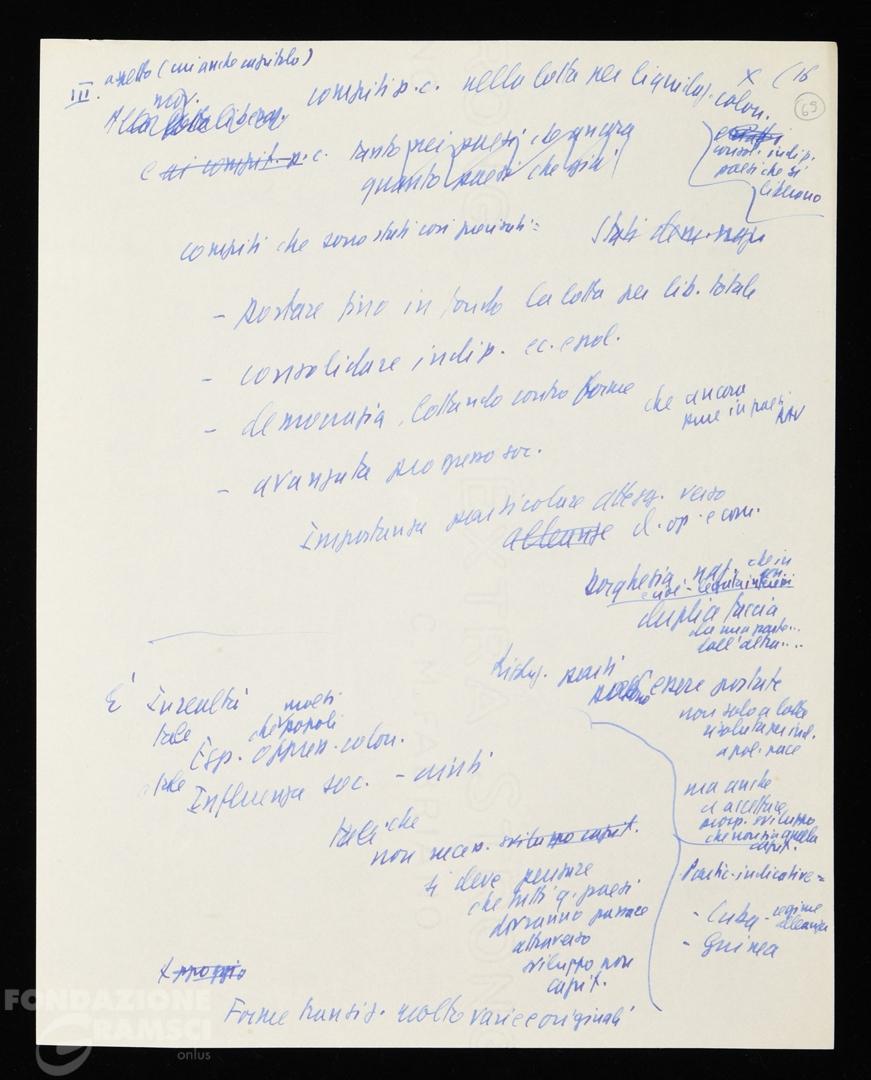 III.
aspetto (
X
( 16
69
mov.
compiti p.c. nella lotta per liquidaz. colon.
e ai compit. p.c. tanto nei paesi che ancora
quanto paesi che già
consol. indip.
paesi che si
liberano
compiti che sono stati così precisati =
Stati dem. naz.
- portare fino in fondo la lotta per lib. totale
- consolidare indip. ec. e pol.
- democrazia, lottando contro forme
che ancora
in paesi
- avanzata progresso soc.
Importanza particolare atteg. verso
alleanze cl. op. e con.
borghesia naz. che in
duplice faccia
da una parte...
dall'altra....
E' In realtà molti
tale che popoli
Esp. oppress. colon.
Influenza soc. - aiuti
essere portate
non solo a lotta
risoluta per ind.
a pol. pace
ma anche
ad accettare
prosp. sviluppo
che non sia quella
capit.
tali che
non necess. sviluppo capit.
si deve pensare
che tutti q. paesi
dovranno passare
attraverso
sviluppo non
capit.
Partic. indicative =
- Cuba - regime
alleanza
- Guinea
Forme transiz. molto varie e originali
FONDAZIONE
GRAMSCI
onlus